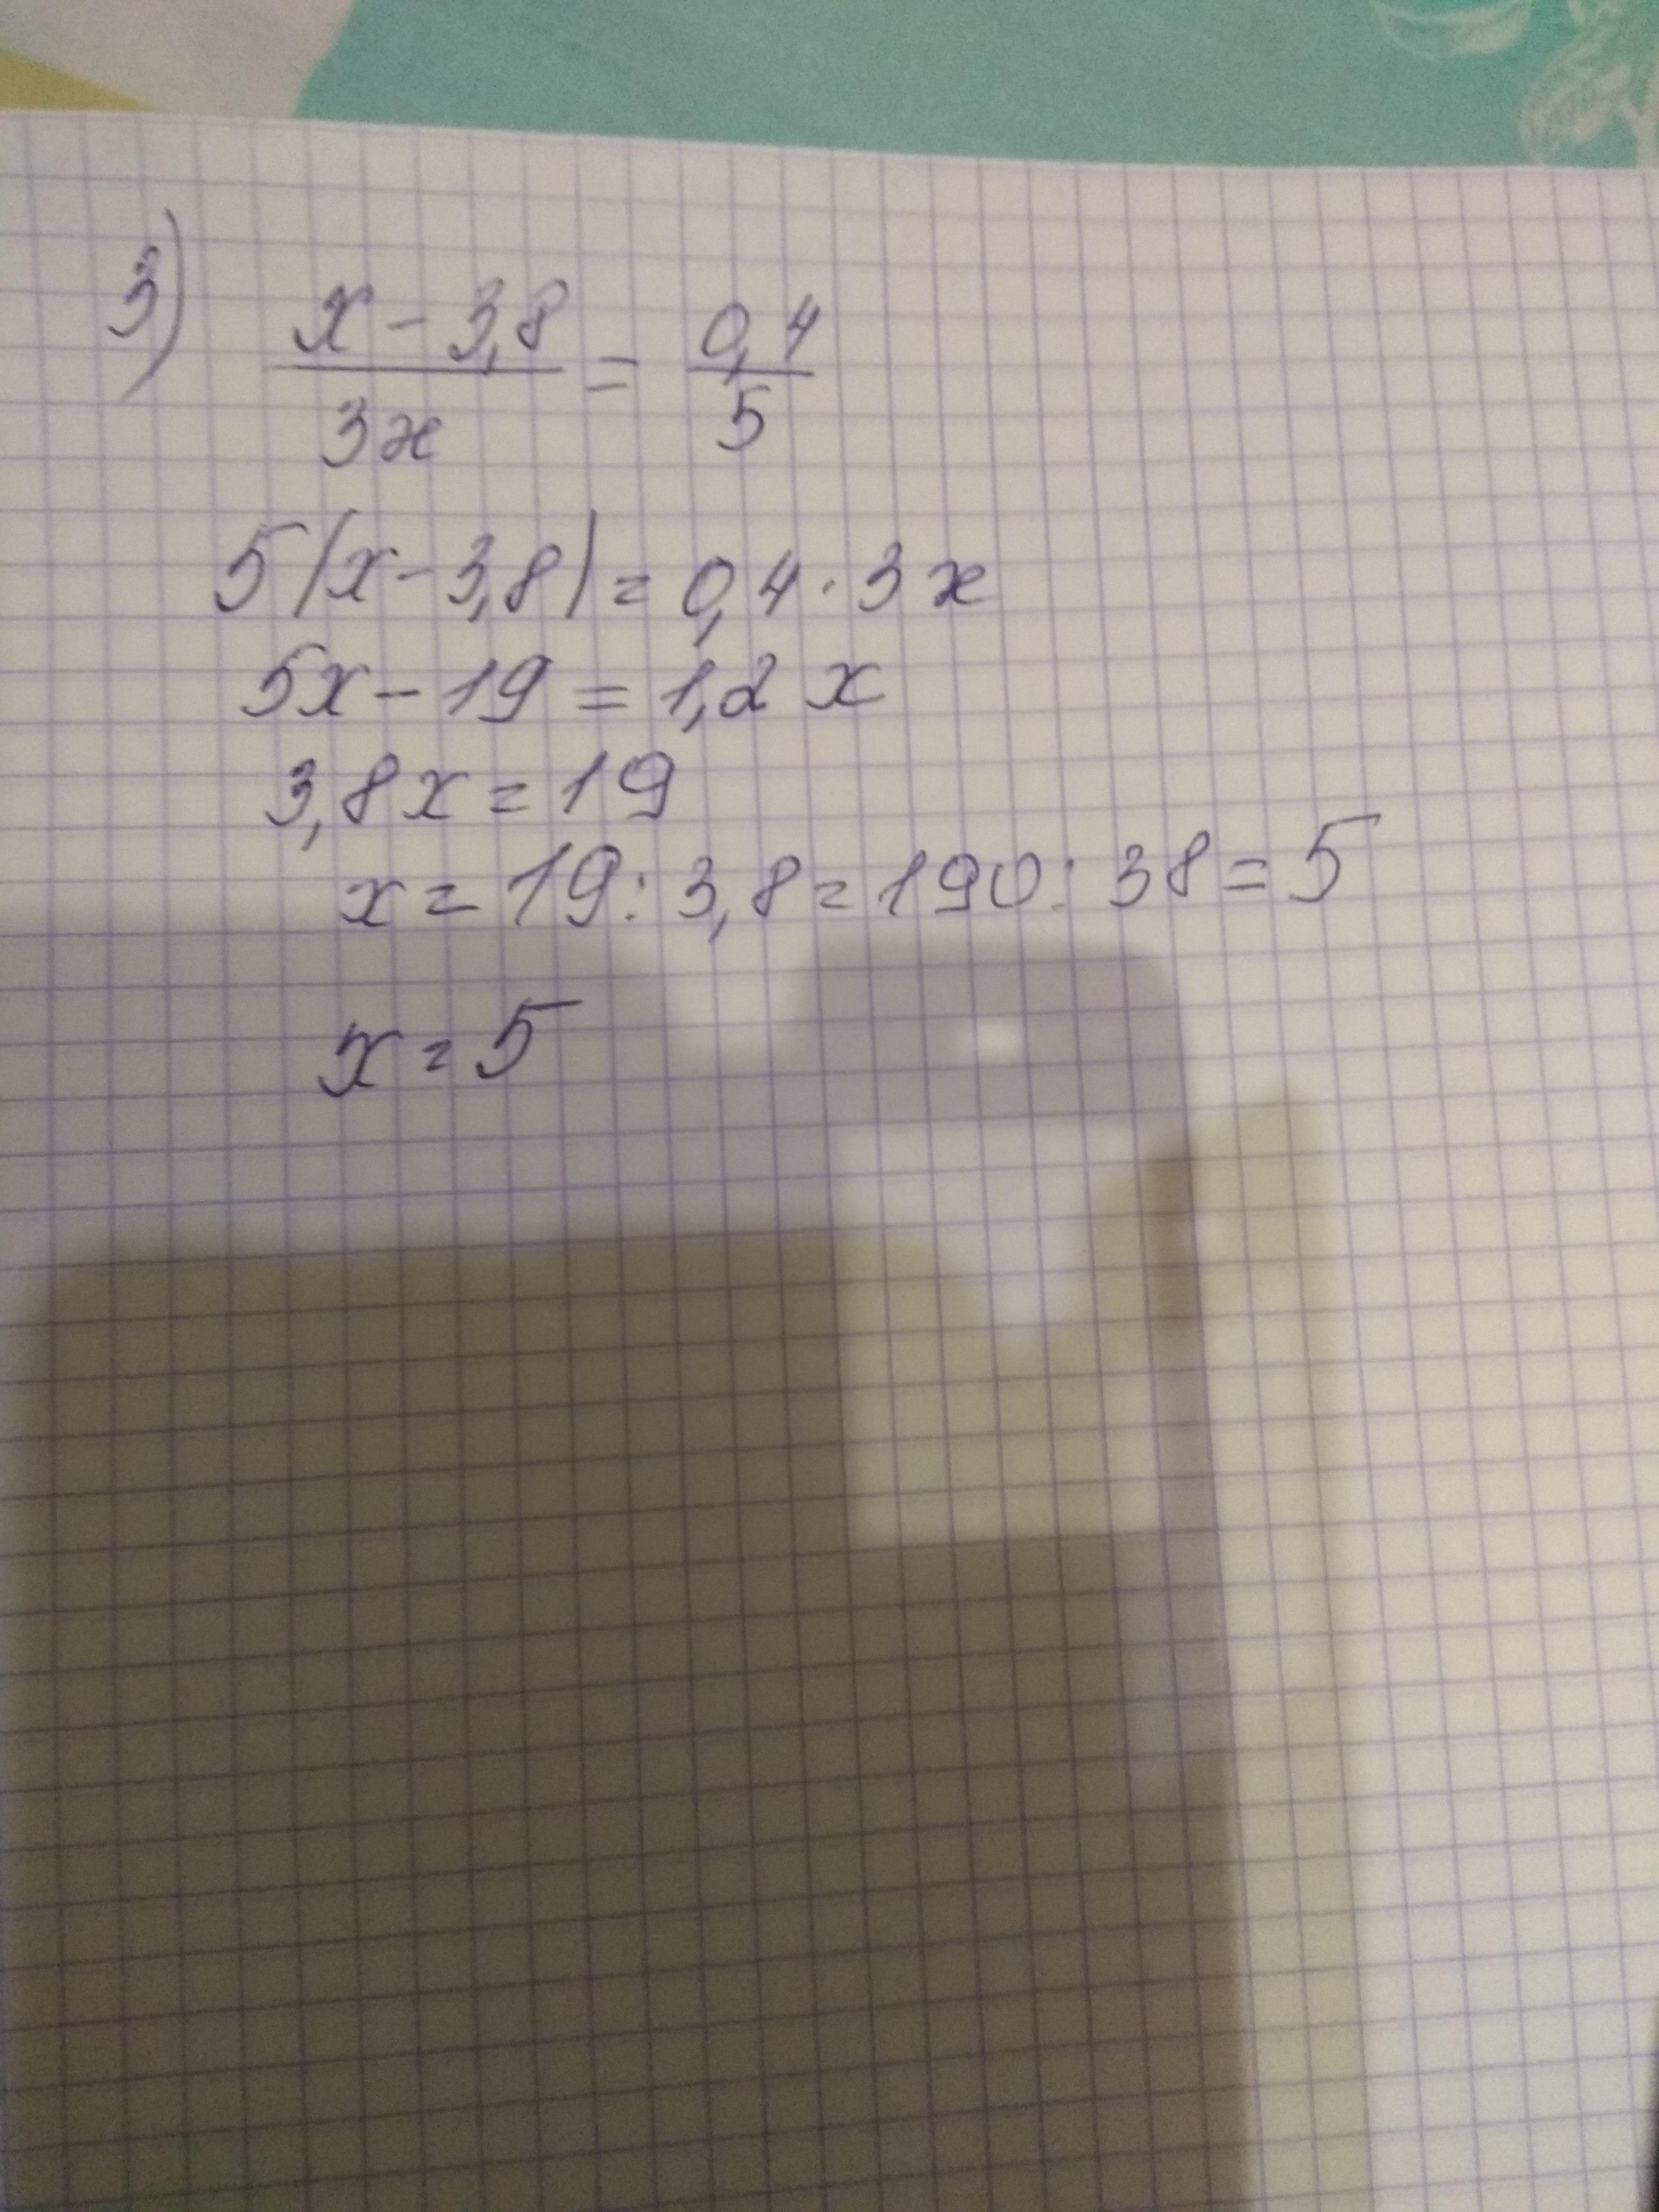 3) x - 3,8 / 3x = 0,4 / 5
5(x - 3,8) = 0,4 · 3x
5x - 19 = 1,2 x
3,8x = 19
x = 19 : 3,8 = 190 : 38 = 5
x = 5